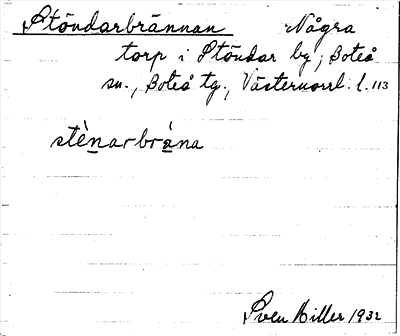 Stöndarbrännan Några
torp i Stöndar by, Boteå
sn., Boteå tg., Västernorrl. l. 113
stènarbrána
Sven Miller 1932